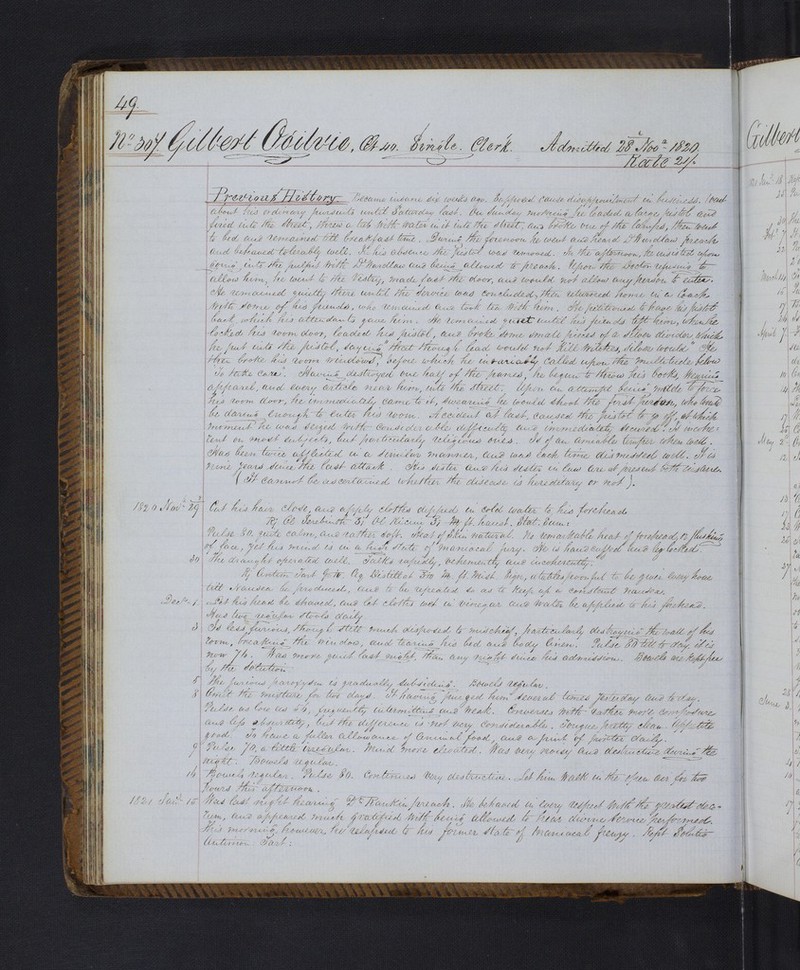 49
No 307 Gilbert Ogilvie, Æt 40. Single. Clerk. Admitted 28th Novr 1820
Rate 21/.
Previous History Became insane six weeks ago. Supposed cause disappointment in business. Went
about his ordinary pursuits until Saturday last. On Sunday morning he loaded a large pistol and
fired into the street, threw a tub with water in it into the street, and broke one of the lamps, then went
to bed and remained till breakfast time. During the forenoon he went and heard Dr Wardlaw preach
and behaved tolerably well. In his absence the pistol was removed. In the afternoon, he insisted upon
going into the pulpit with Dr Wardlaw and being allowed to preach. Upon the Doctor refusing to
allow him, he went to the Vestry, made fast the door, and would not allow any person to enter.
He remained quietly there until the service was concluded, then returned home in a coach
with some of his friends, who remained and took tea with him. He petitioned to have his pistol
back which his attendants gave him. He remained quiet until his friends left him, when he
locked his room door, loaded his pistol, and broke some small pieces of a silver divider which
he put into the pistol, saying "that though lead would not kill witches, silver would". He
then broke his room windows, before which he invariably called upon the multitude below
"to take care". Having destroyed one half of the panes, he began to throw his books, wearing
apparel, and every article near him, into the street. Upon an attempt being made to force
his room door, he immediately came to it, swearing he would shoot the first person, who
be daring enough to enter his room. Accident at last, caused the pistol to go off, at which
moment he was seized with considerable difficulty and immediately secured. Is incohe-
rent on most subjects, but particularly religious ones. Is of an amiable temper when well.
Has been twice afflicted in a similar manner, and was each time dismissed well. It is
nine years since the last attack. His sister and his sister in law are at present both insane.
(It cannot be ascertained whether the disease is hereditary or not).
1820 Novr 29 Cut his hair close, and apply cloths dipped in cold water to his forehead.
Rx Ol Terebinth ℥i Ol Ricini ℥i M. ft. haust. Stat. sum.
Pulse 80, quite calm, and rather soft. Heat of skin natural. No remarkable heat of forehead, or flushing
of face, yet his mind is in a high state of maniacal fury. He is handcuffed and leg locked.
30 The draught operated well. Talks rapidly, vehemently and incoherently.
Aq Distillat M. ft Mist. tablespoonful to be given every hour
till Nausea be produced, and to be repeated so as to keep up a constant nausea.
Decr 1. Let his head be shaved, and let cloths wet in vinegar and water be applied to his forehead.
Has two regular stools daily.
3 Is less furious, though still much disposed to mischief, particularly destroying the wall of his
room, breaking the window, and tearing his bed and body linen. Pulse 80 till to day, it is
now 76. Was more quiet last night, than any night since his admission. Bowels are kept free
by the solution
5 The furious paroxysm is gradually subsiding. Bowels regular.
8 Omit the mixture for two days. It having purged him several times yesterday and to day.
Pulse as low as 56, frequently intermitting and weak. Converses with rather more composure
and less absurdity, but the difference is not very considerable. Tongue pretty clean. Appetite
good. To have a fuller allowance of animal food, and a pint of porter daily.
9 Pulse 70, a little irregular. Mind more elevated. Was very noisy and destructive during the
night. Bowels regular.
16 Bowels regular. Pulse 80. Continues very destructive. Let him walk in the open air for two
hours this afternoon.
1821 Jany 15 Was last night hearing Dr Rankin preach. He behaved in every respect with the greatest deco-
rum, and appeared much gratified with being allowed to hear divine service performed.
This morning, however, he relapsed to his former state of maniacal frenzy. Rept Solutio
Antimon Tart:
Gilbert